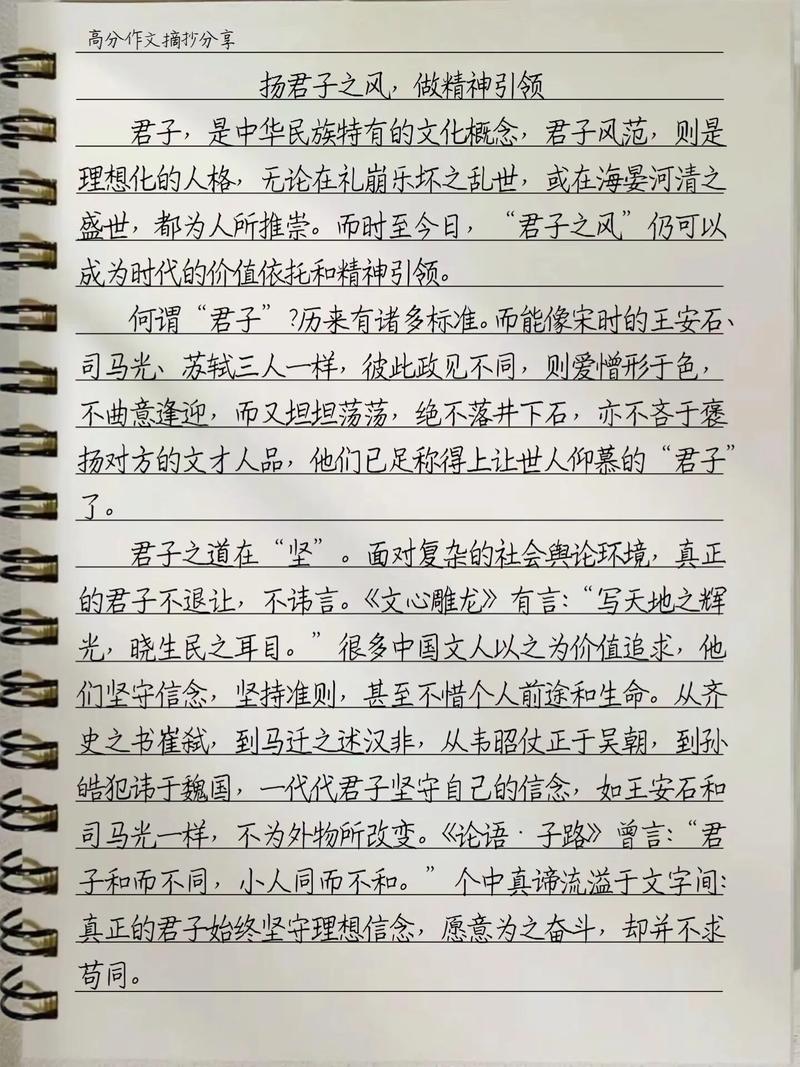 高分作文摘抄分享
扬君子之风，做精神引领
君子，是中华民族特有的文化概念，君子风范，则是
理想化的人格，无论在礼崩乐坏之乱世，或在海晏河清之
盛世，都为人所推崇。而时至今日，“君子之风”仍可以
成为时代的价值依托和精神引领。
何谓“君子”？历来有诸多标准。而能像宋时的王安石、
司马光、苏轼三人一样，彼此政见不同，则爱憎形于色，
不曲意逢迎，而又坦坦荡荡，绝不落井下石，亦不吝于褒
扬对方的文才人品，他们已足称得上让世人仰慕的“君子”
了。
君子之道在“坚”。面对复杂的社会舆论环境，真正
的君子不退让，不讳言。《文心雕龙》有言：“写天地之辉
光，晓生民之耳目。”很多中国文人以之为价值追求，他
们坚守信念，坚持准则，甚至不惜个人前途和生命。从齐
史之书崔弑，到马迁之述汉非，从韦昭仗正于吴朝，到孙
皓犯讳于魏国，一代代君子坚守自己的信念，如王安石和
司马光一样，不为外物所改变。《论语·子路》曾言：“君
子和而不同，小人同而不和。”个中真谛流溢于文字间：
真正的君子始终坚守理想信念，愿意为之奋斗，却并不求
苟同。